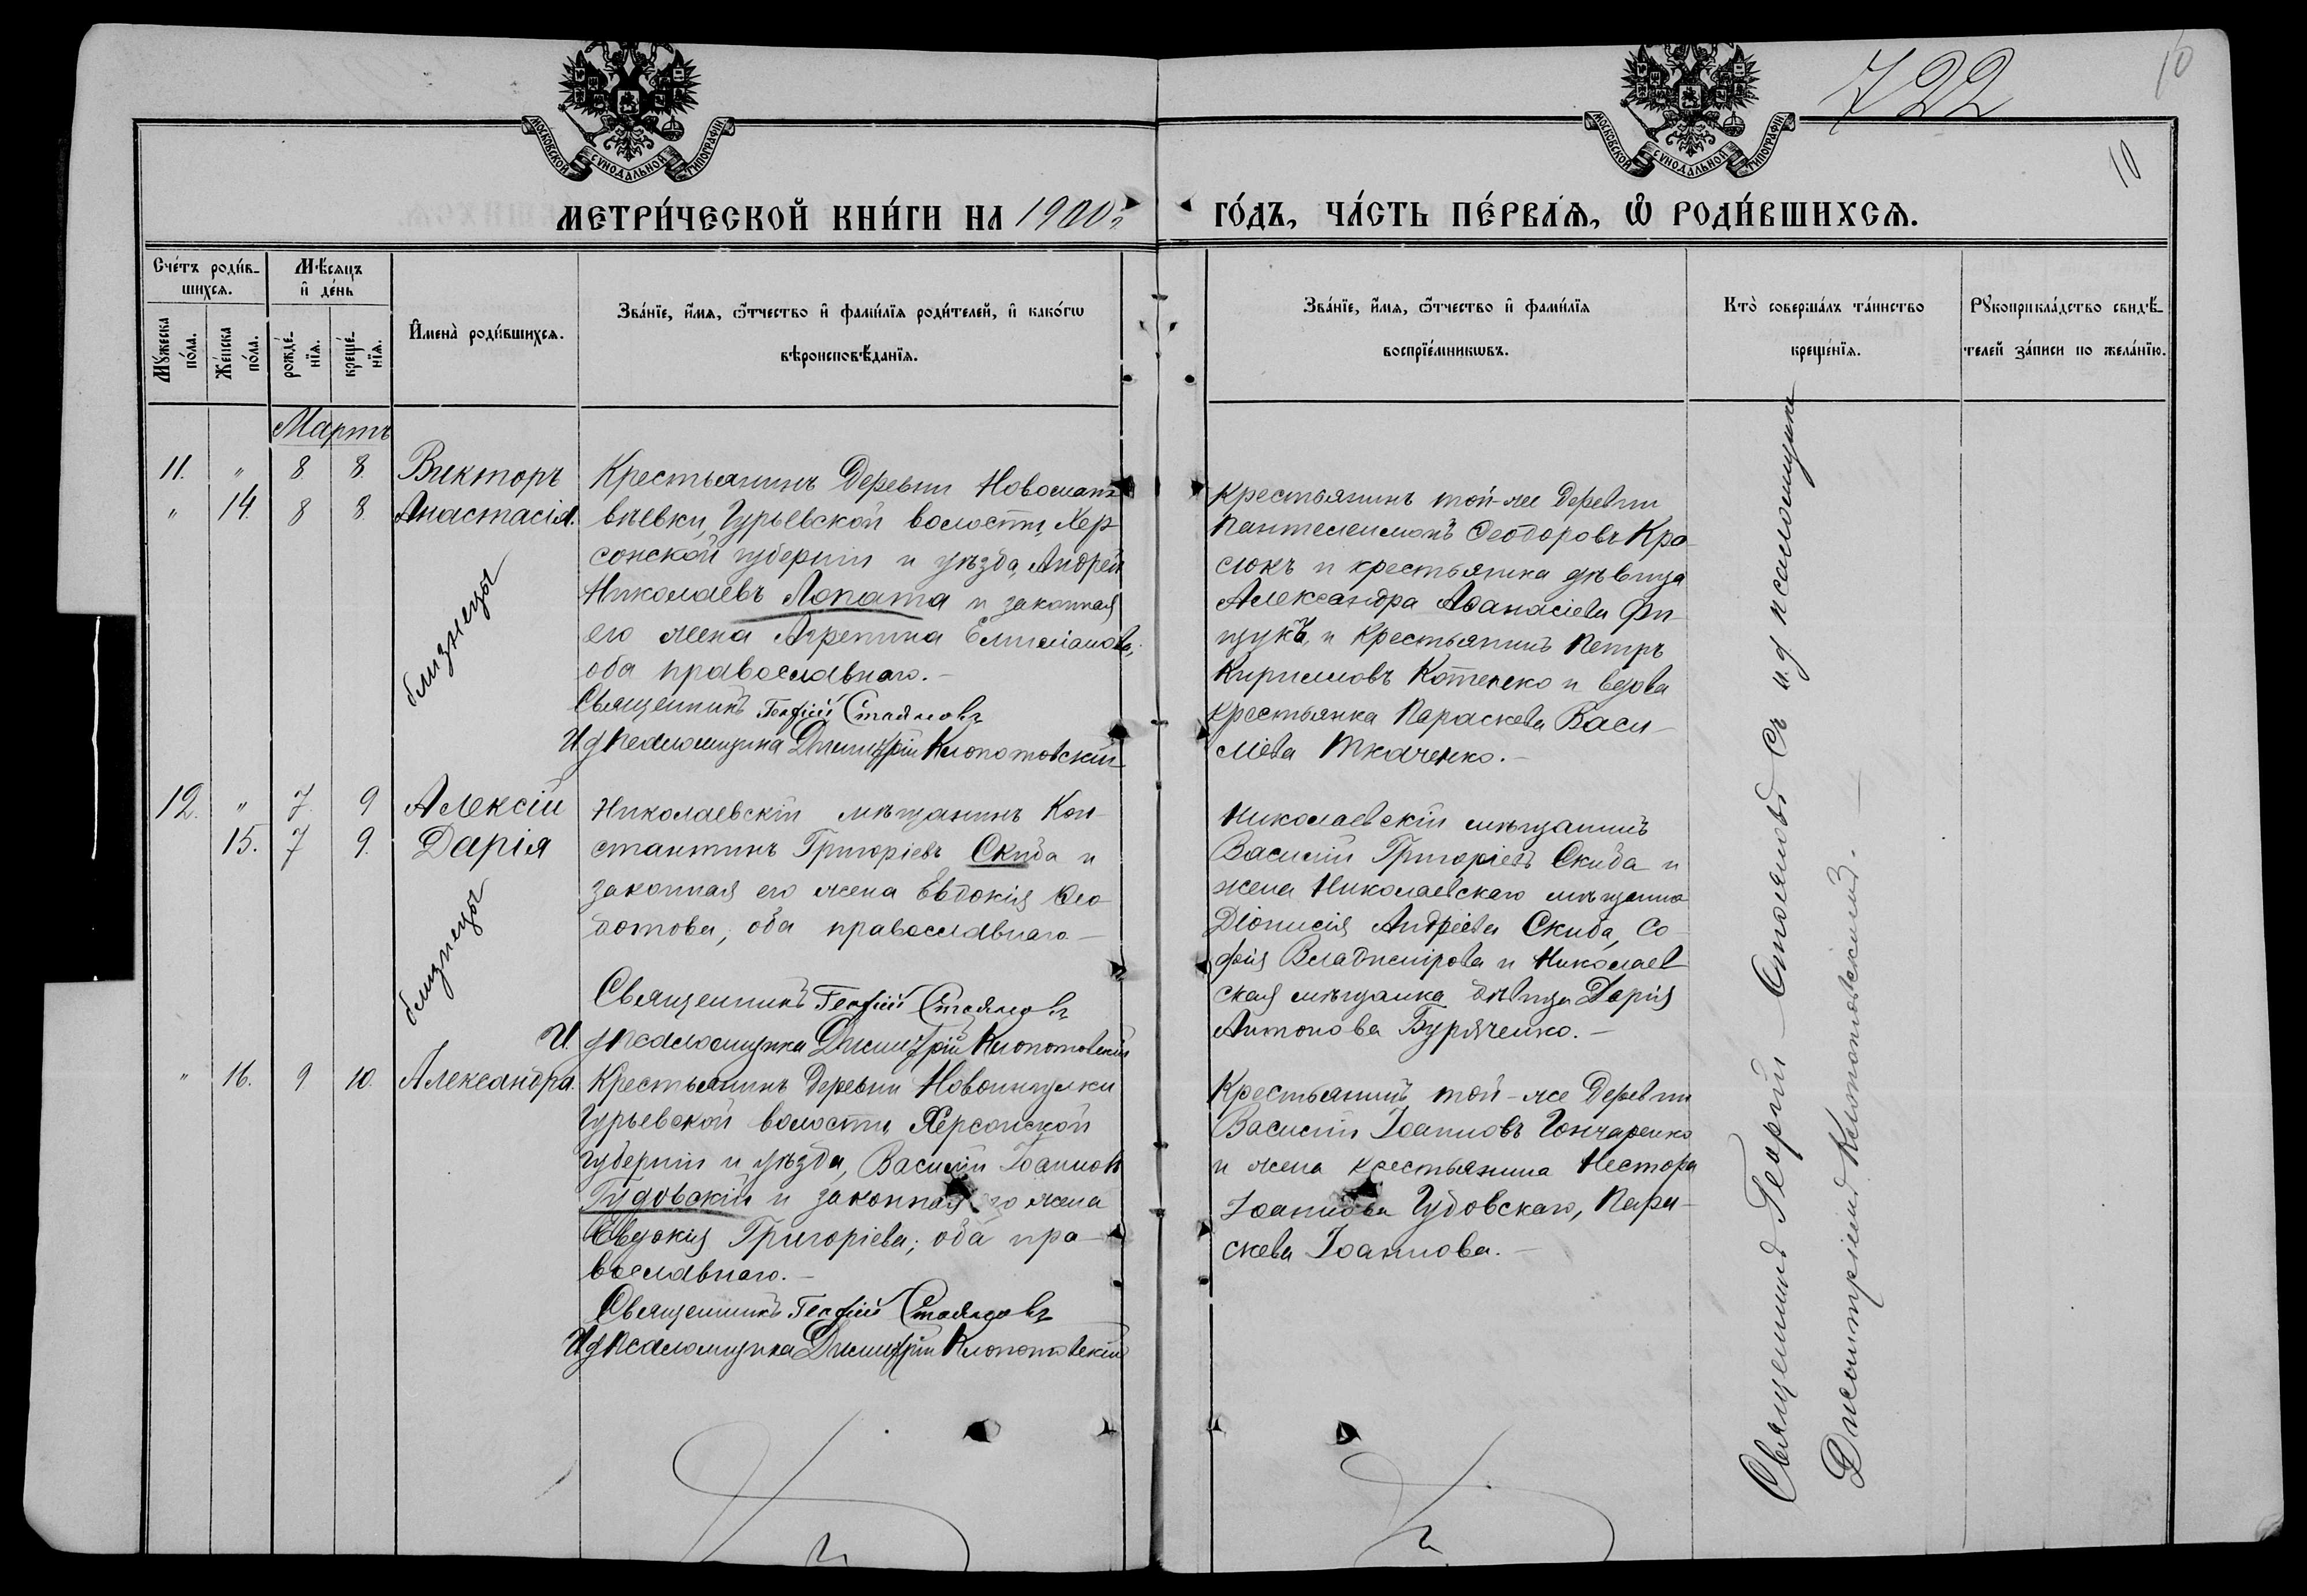 МОСКОВСКОЙ СУНОДАЛЬНОЙ ТИПОГРАФІИ
МОСКОВСКОЙ СУНОДАЛЬНОЙ ТИПОГРАФІИ
722
10
10
МЕТРИ́ЧЕСКОЙ КНИ́ГИ НА 1900 г.
ГО́ДЪ, ЧА́СТЬ ПЕ́РВАѦ, Ѡ҆ РОДИ́ВШИХСѦ.
Сче́тъ роди́в-
шихсѧ.
Мѣ́сѧцъ
и҆ де́нь
Мꙋ́жеска
по́ла.
Же́нска
по́ла.
рожде́-
нїѧ.
креще́-
нїѧ.
И҆мена̀ роди́вшихсѧ.
Зва́нїе, и҆́мѧ, ѻ҆́тчество и҆ фами́лїѧ роди́телей, и҆ како́гѡ
вѣроисповѣ́данїѧ.
Зва́нїе, и҆́мѧ, ѻ҆́тчество и҆ фами́лїѧ
воспрїе́мникѡвъ.
Кто̀ соверша́лъ та́инство
креще́нїѧ.
Рꙋкоприкла́дство свидѣ́-
телей за́писи по жела́нїю.
Мартъ
11. " 8 8. Викторъ
" 14. 8 8. Анастасія.
близнецы
Крестьянинъ деревни Новомат-
вѣевки, Гурьевской волости, Хер-
сонской губерніи и уѣзда, Андрей
Николаевъ Лопата и законная
его жена Агрепина Емиліанова;
оба православнаго.—
Священникъ Георгій Стояновъ
И д псаломщика Димитрій Клопотовскій
Крестьянинъ той-же деревни
Пантелеимонъ Ѳеодоровъ Кра-
сюкъ и крестьянка дѣвица
Александра Аѳанасіева Фи-
щукъ, и крестьянинъ Петръ
Кирилловъ Котенко и вдова
крестьянка Параскева Васи-
ліева Ткаченко.—
12. " 7. 9 Алексій
15. 7 9. Дарія
близнецы
Николаевскій мѣщанинъ Кон-
стантинъ Григоріевъ Скида и
законная его жена Евдокія Ѳео-
дотова; оба православнаго—
Священникъ Георгій Стояновъ
И. д псаломщика Димитрій Клопотовскій
Николаевскій мѣщанинъ
Василій Григоріевъ Скида и
жена Николаевскаго мѣщанина
Діонисія Андреева Скида, Со-
фія Владимірова и Николаев-
ская мѣщанка дѣвица Дарія
Антонова Буряченко.—
" 16. 9 10. Александра.
Крестьянинъ деревни
Гурьевской волости, Херсонской
губерніи и уѣзда, Василій Іоанновъ
Гудовскій и законная его жена
Евдокія Григоріева; оба пра-
вославнаго.—
Священникъ Георгій Стояновъ
И д псаломщика Димитрій Клопотовскій
Крестьянинъ той-же деревни
Василій Іоанновъ Гончаренко
и жена крестьянина Нестора
Іоаннова Гудовскаго, Пара-
скева Іоаннова.—
Священникъ Георгій Стояновъ съ и. д псаломщика
Димитріемъ Клопотовскимъ.—